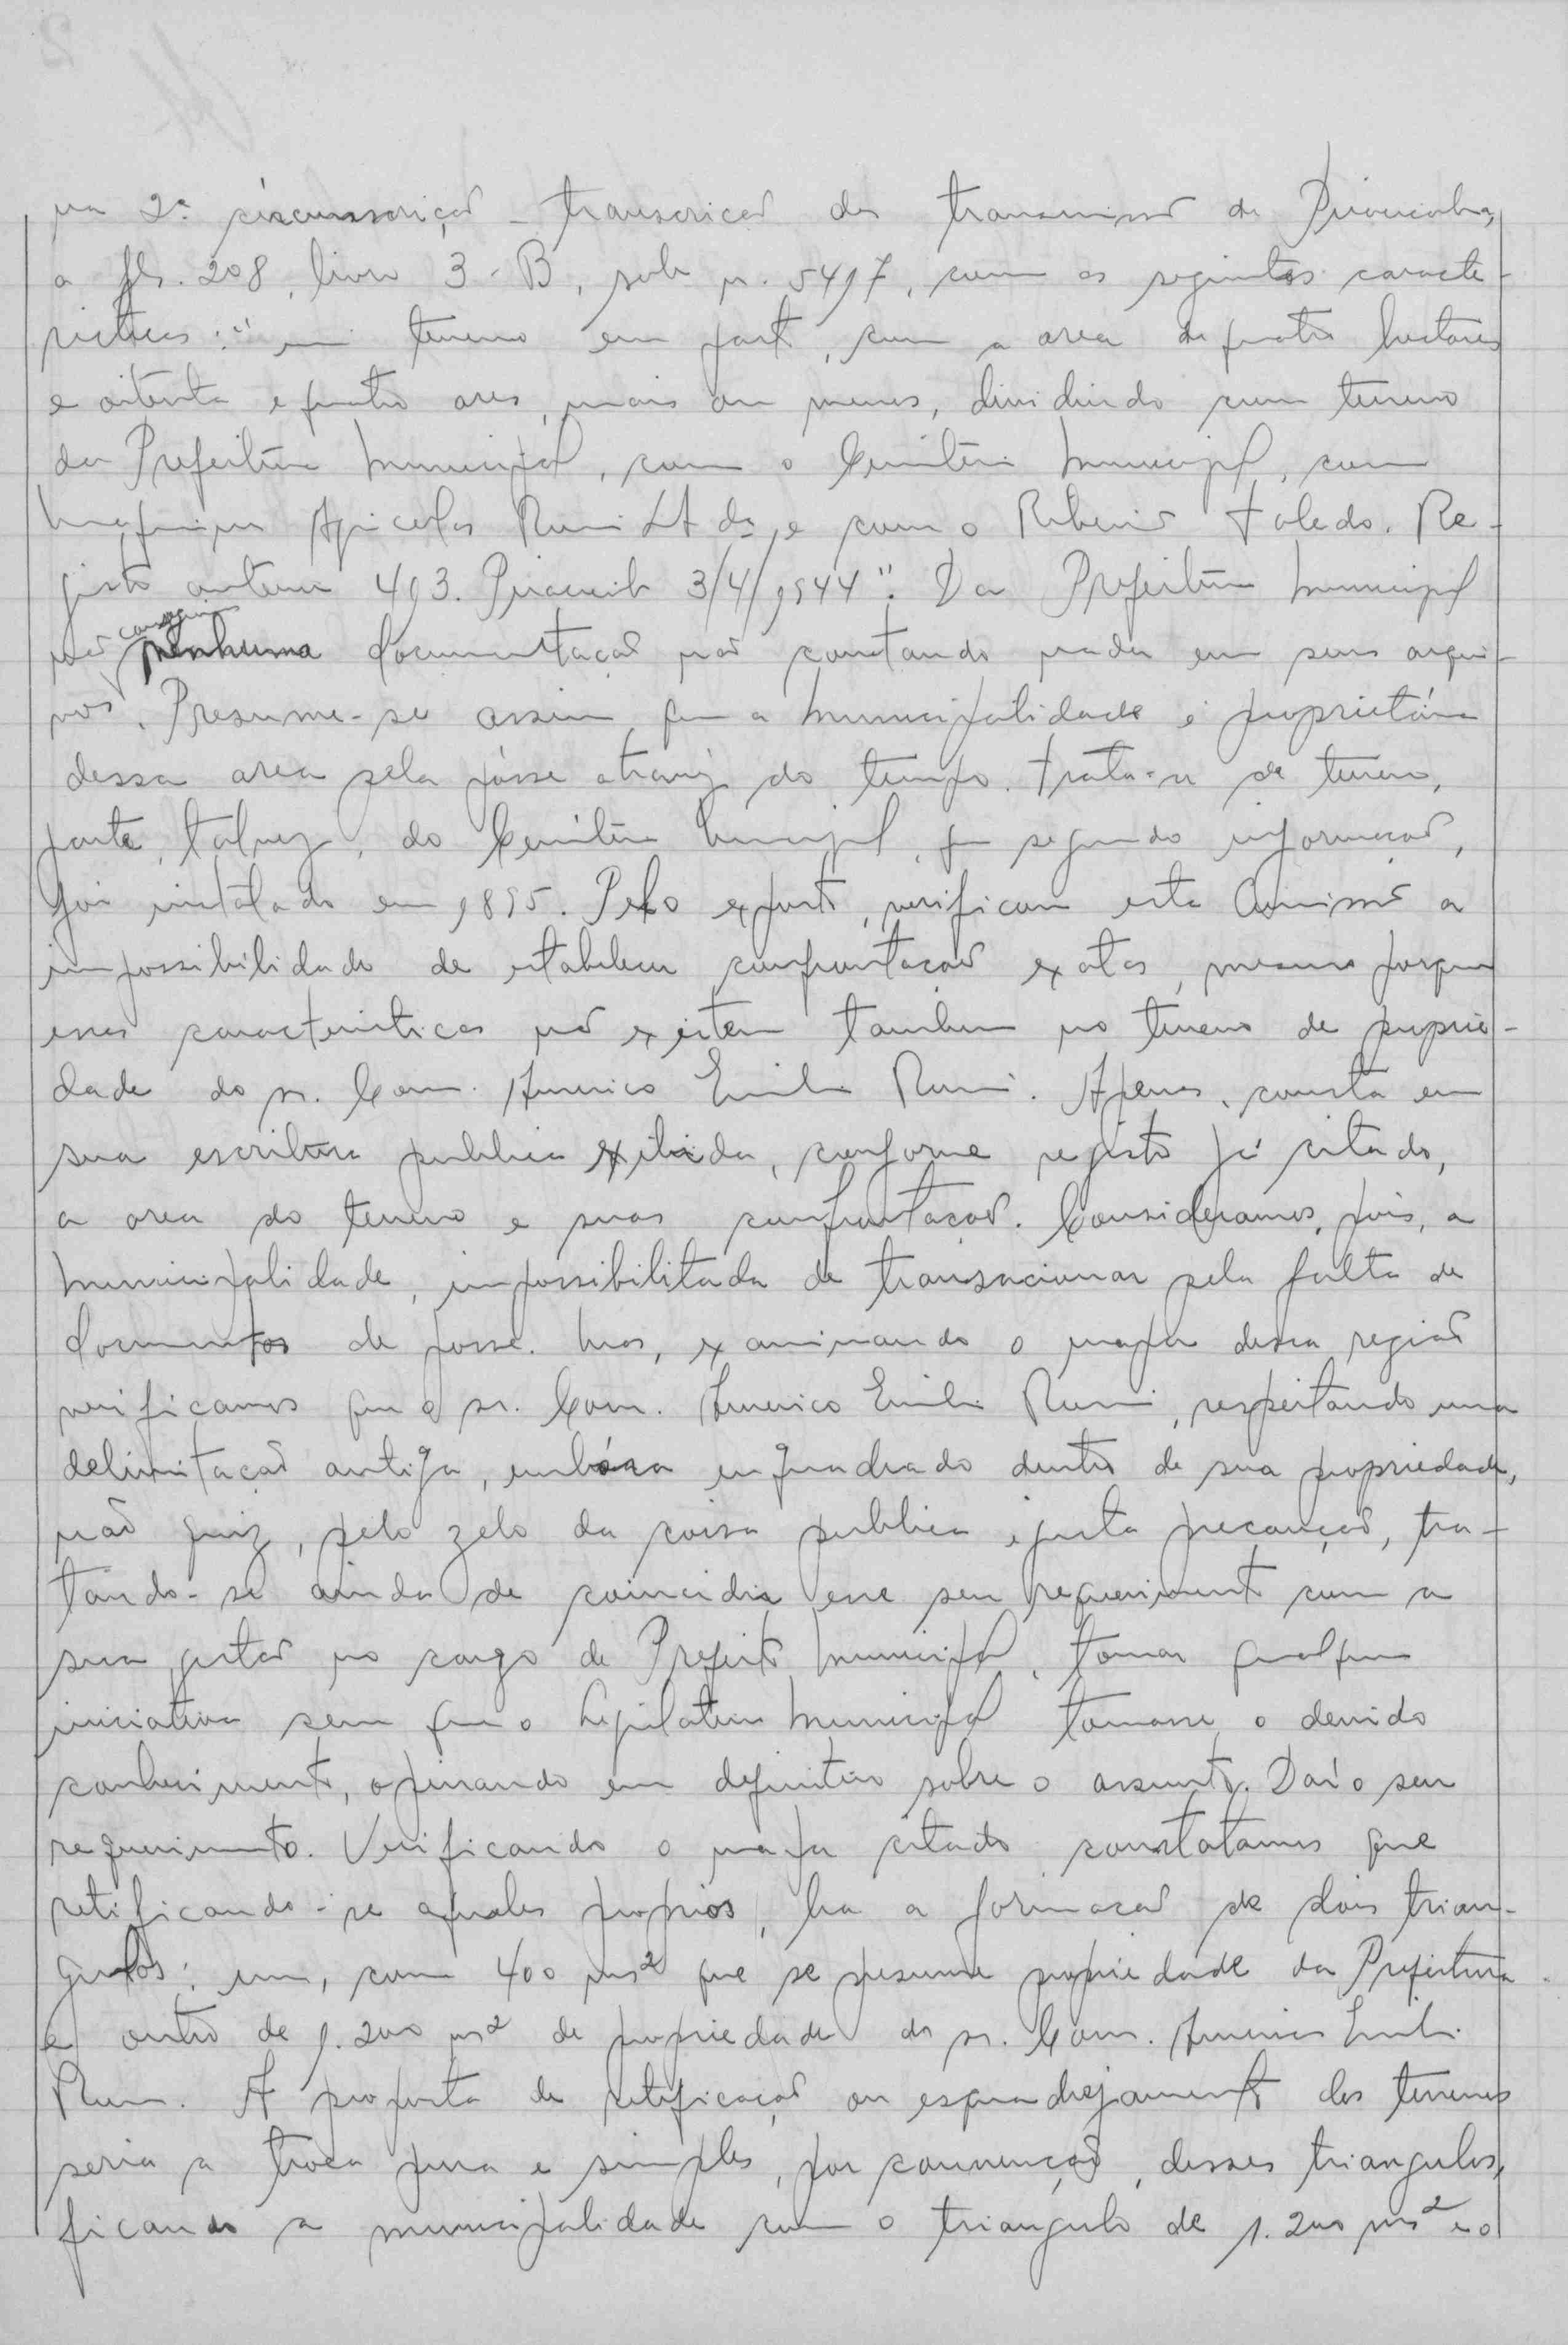 na 2ª circunscrição - transcrição das transmissões de Piracicaba,
a fls. 208, livro 3-B, sob n. 5497, com as seguintes caracte-
risticas: "um terreno em pasto, com a area de quatro hectares
e oitenta e quatro ares, mais ou menos, dividindo com terreno
da Prefeitura Municipal, com o Cemitério Municipal, com
Maquinas Agricolas Romi Ltda, e com o Ribeirão Toledo. Re-
gisto anterior 493. Piracicaba 3/4/1944". Da Prefeitura Municipal
não consegui nenhuma documentação não constando nada em seus arqui-
vos. Presume-se assim que a municipalidade é proprietária
dessa area pela pósse através do tempo. Trata-se de terreno,
parte, talvez, do Cemitério Municipal, que segundo informação,
foi instalado em 1895. Pelo exposto, verificou esta Comissão a
impossibilidade de estabelecer confrontação exatas, mesmo porque
essas caracteristicas não existem tambem no terreno de proprie-
dade do sr. Com. Americo Emilio Romi. Apenas, consta em
sua escritura publica exibida, conforme registo já citado,
a area do terreno e suas confrontações. Consideramos, pois, a
municipalidade, impossibilitada de transacionar pela falta de
documentos de posse. Mas, examinando o mapa dessa região
verificamos que o sr. Com. Americo Emilio Romi, respeitando uma
delimitação antiga, embóra enquadrado dentro de sua propriedade,
não quiz, pelo zelo da coisa publica e justa precaução, tra-
tando-se ainda de coincidir esse seu requerimento com a
sua gestão no cargo de Prefeito Municipal, tomar qualquer
iniciativa sem que o Legislativo Municipal tomasse o devido
conhecimento, opinando em definitivo sobre o assunto. Daí o seu
requerimento. Verificando o mapa citado constatamos que
retificando-se aqueles proprios, ha a formação de dois trian-
gulos: um, com 400 ms² que se presume propriedade da Prefeitura
e outro de 1.200 ms² de propriedade do sr. Com. Americo Emilio
Romi. A proposta de retificação ou esquadrejamento dos terrenos
seria a troca pura e simples, por convenção, desses triangulos,
ficando a municipalidade com o triangulo de 1.200 ms² e o